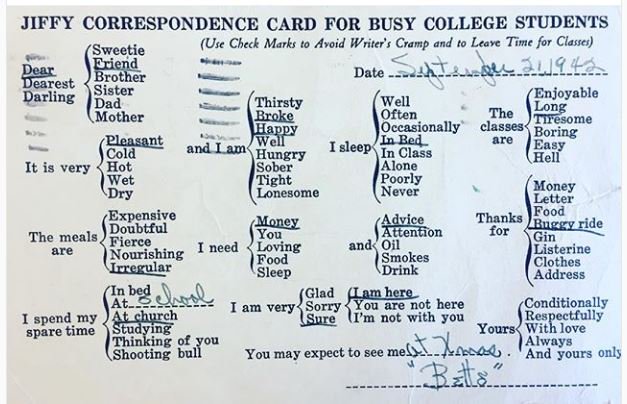 JIFFY CORRESPONDENCE CARD FOR BUSY COLLEGE STUDENTS
(Use Check Marks to Avoid Writer's Cramp and to Leave Time for Classes)
Date September 21, 1942
Dear
Dearest
Darling
Sweetie
Friend
Brother
Sister
Dad
Mother
It is very
Pleasant
Cold
Hot
Wet
Dry
and I am
Thirsty
Broke
Happy
Well
Hungry
Sober
Tight
Lonesome
I sleep
Well
Often
Occasionally
In Bed
In Class
Alone
Poorly
Never
The
classes
are
Enjoyable
Long
Tiresome
Boring
Easy
Hell
The meals
are
Expensive
Doubtful
Fierce
Nourishing
Irregular
I need
Money
You
Loving
Food
Sleep
and
Advice
Attention
Oil
Smokes
Drink
Thanks
for
Money
Letter
Food
Buggy ride
Gin
Listerine
Clothes
Address
I spend my
spare time
In bed
At School
At church
Studying
Thinking of you
Shooting bull
I am very
Glad
Sorry
Sure
I am here
You are not here
I'm not with you
Yours
Conditionally
Respectfully
With love
Always
And yours only
You may expect to see me at Xmas.
"Betts"